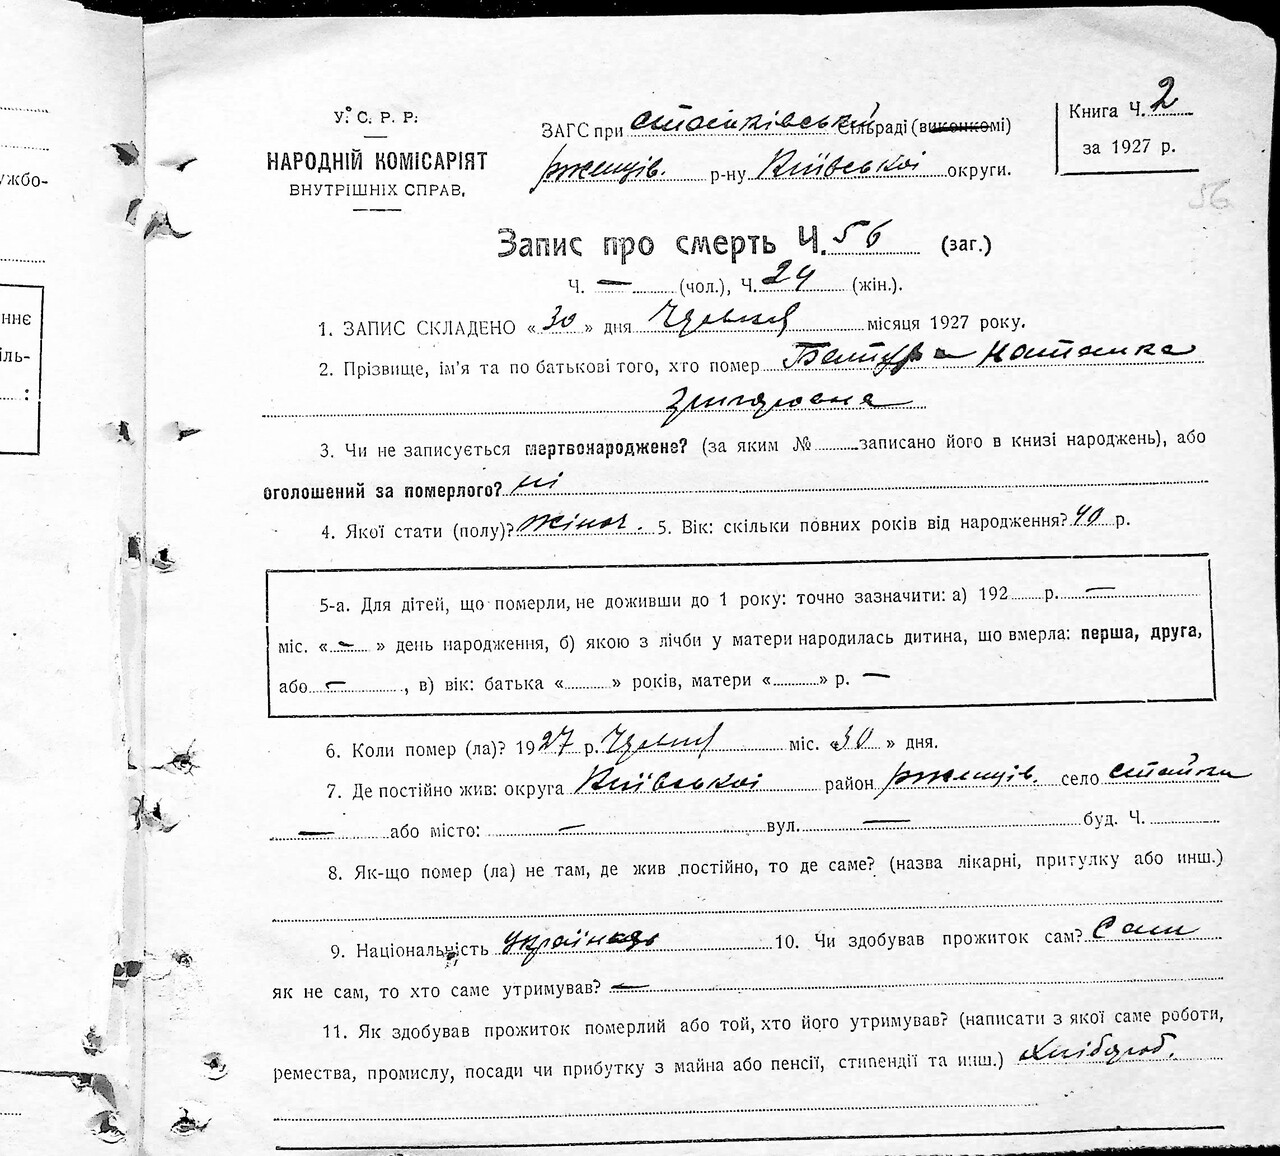 ужбо-
ннє
іль-
:
У. С. Р. Р.
НАРОДНІЙ КОМІСАРІЯТ
ВНУТРІШНІХ СПРАВ.
ЗАГС при Стайківській сільраді (виконкомі)
Ржищів. р-ну Київської округи.
Книга Ч. 2
за 1927 р.
56
Запис про смерть Ч. 56 (заг.)
Ч. — (чол.), Ч. 24 (жін.).
1. ЗАПИС СКЛАДЕНО «30» дня місяця 1927 року.
2. Прізвище, ім'я та по батькові того, хто помер Батура Наталка
Григоровна
3. Чи не записується мертвонароджене? (за яким № записано його в книзі народжень), або
оголошений за померлого? ні
4. Якої стати (полу)? жіноч. 5. Вік: скільки повних років від народження? 40 р.
5-а. Для дітей, що померли, не доживши до 1 року: точно зазначити: а) 192 р. —
міс. «—» день народження, б) якою з лічби у матери народилась дитина, що вмерла: перша, друга,
або —, в) вік: батька « » років, матери « » р. —
6. Коли помер (ла)? 1927 р. міс. «30» дня.
7. Де постійно жив: округа Київської район Ржищів. село Стайки
— або місто: — вул. — буд. Ч.
8. Як-що помер (ла) не там, де жив постійно, то де саме? (назва лікарні, притулку або инш.)
9. Національність 10. Чи здобував прожиток сам? Сам
як не сам, то хто саме утримував? —
11. Як здобував прожиток померлий або той, хто його утримував? (написати з якої саме роботи,
ремества, промислу, посади чи прибутку з майна або пенсії, стипендії та инш.) Хлібороб.